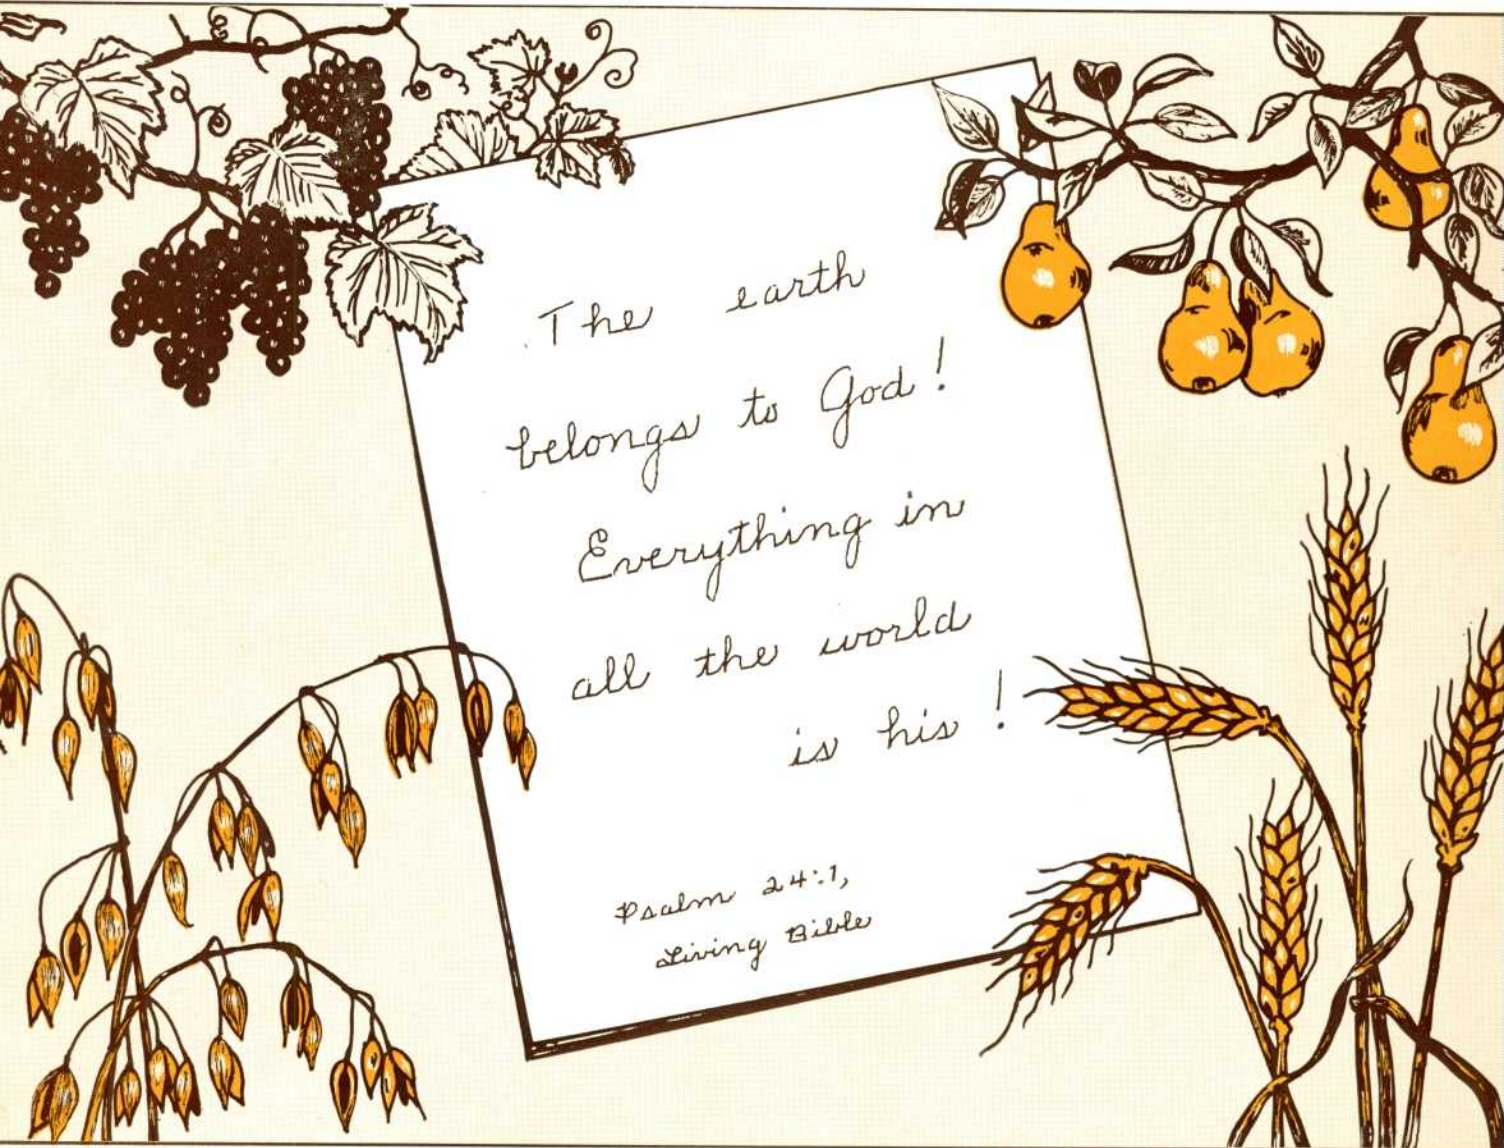 The earth
belongs to God!
Everything in
all the world
is his!
Psalm 24:1,
Living Bible